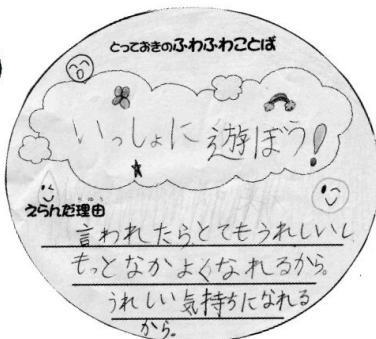 とっておきのふわふわことば
いっしょに遊ぼう!
えらんだ理由
言われたらとてもうれしいし
もっとなかよくなれるから。
うれしい気持ちになれる
から。